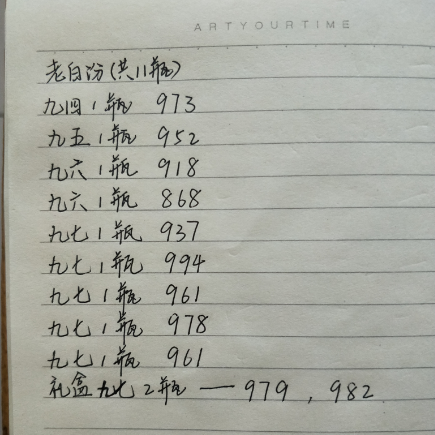 ARTYOURTIME
老白汾(共11瓶)
九四1瓶 973
九五1瓶 952
九六1瓶 918
九六1瓶 868
九七1瓶 937
九七1瓶 994
九七1瓶 961
九七1瓶 978
九七1瓶 961
礼盒九七2瓶——979,982